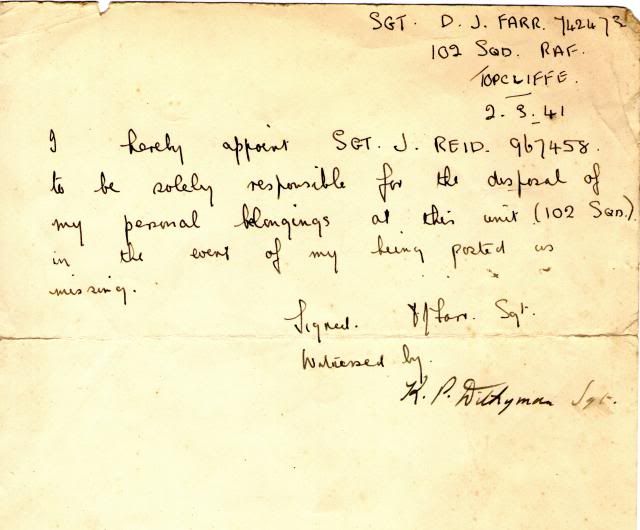 SGT. D. J. FARR. 742473
102 SQD. RAF.
TOPCLIFFE.
2.3.41
I hereby appoint SGT. J. REID. 967458.
to be solely responsible for the disposal of
my personal belongings at this unit (102 SQD.)
in the event of my being posted as
missing.
Signed. DJFarr. Sgt.
Witnessed by.
K. P. Sgt.